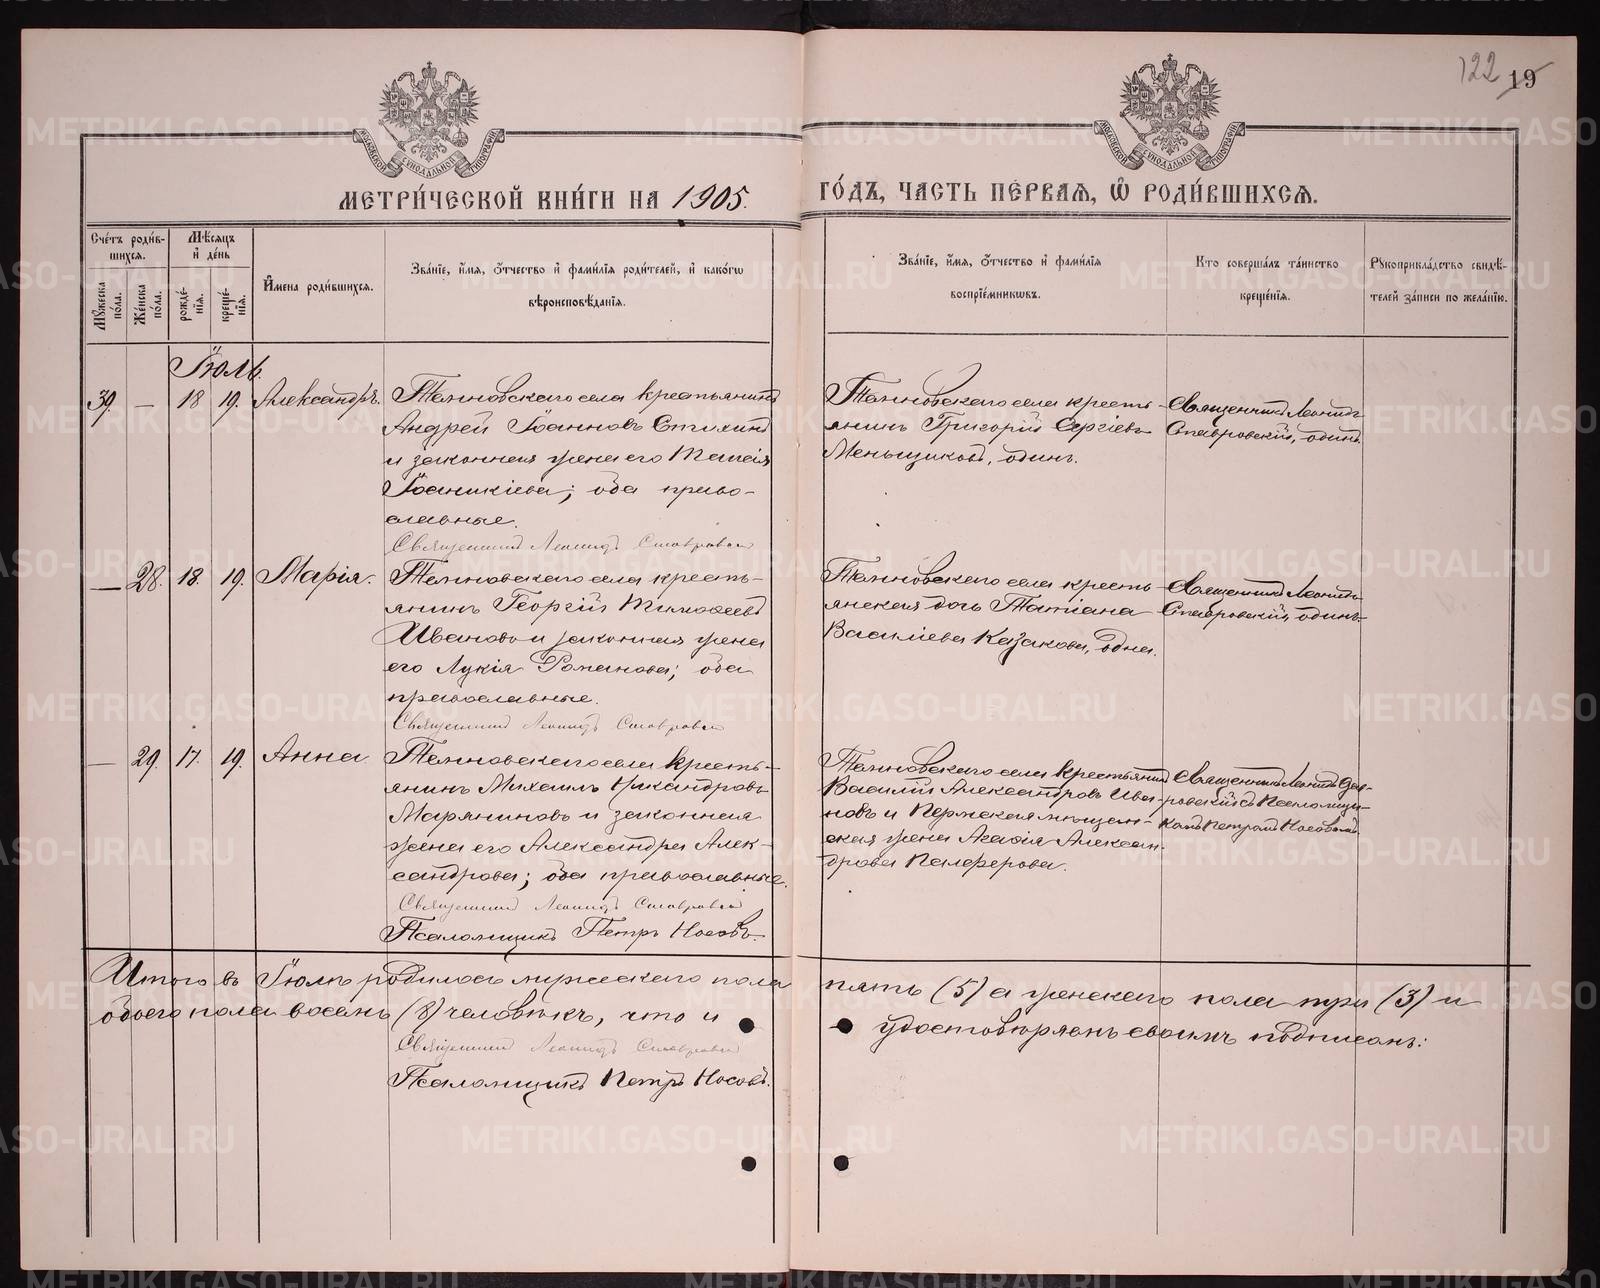 122 19
МОСКОВСКОЙ СѴНОДАЛЬНОЙ ТИПОГРАФІИ
МОСКОВСКОЙ СѴНОДАЛЬНОЙ ТИПОГРАФІИ
МЕТРИ́ЧЕСКОЙ КНИ́ГИ НА 1905. ГО́ДЪ, ЧАСТЬ ПЕ́РВАЯ, Ѡ РОДИ́ВШИХСЯ.
Сче́тъ роди́в-
шихся.
Мѣ́сяцъ
и҆ де́нь
Мꙋ́жеска по́ла.
Же́нска по́ла.
рожде́-
нїя.
креще́-
нїя.
И҆мена роди́вшихся.
Зва́нїе, и҆́мя, ѻ҆́тчество и҆ фами́лїя роди́телей, и҆ како́гѡ
вѣроисповѣ́данїя.
Зва́нїе, и҆́мя, ѻ҆́тчество и҆ фами́лїя
воспрїе́мникѡвъ.
Кто соверша́лъ та́инство
креще́нїя.
Рꙋкоприкла́дство свидѣ́-
телей за́писи по жела́нїю.
Іюль.
39. — 18 19. Александръ.
Темновскаго села крестьянинъ
Андрей Іоанновъ Стихинъ
и законная жена его
Іоанникіева; оба право-
славные.
Священникъ Леонидъ Ставровскій
Темновскаго села кресть-
янинъ Григорій Сергіевъ
Меньщиковъ, одинъ.
Священникъ Леонидъ
Ставровскій, одинъ.
— 28. 18. 19. Марія.
Темновскаго села кресть-
янинъ Георгій Тимофеевъ
Ивановъ и законная жена
его Лукія Романова; оба
православные.
Священникъ Леонидъ Ставровскій
Темновскаго села кресть-
янская дочь Татіана
Василіева Казакова, одна.
Священникъ Леонидъ
Ставровскій, одинъ.
— 29. 17. 19. Анна
Темновскаго села кресть-
янинъ Михаилъ Никандровъ
Маряниновъ и законная
жена его Александра Алек-
сандрова; оба православные.
Священникъ Леонидъ Ставровскій
Псаломщикъ Петръ Носовъ.
Темновскаго села крестьянинъ
Василій Александровъ Ива-
новъ и Пермская мещан-
ская жена Агафія Алексан-
дрова Панферова.
Священникъ Леонидъ Став-
ровскій съ Псаломщи-
комъ Петромъ Носовымъ
Итого въ Іюлѣ родилось мужескаго пола пять (5) а женскаго пола три (3) и
обоего пола восемь (8) человѣкъ, что и удостовѣряемъ своимъ подписомъ:
Священникъ Леонидъ Ставровскій
Псаломщикъ Петръ Носовъ.
METRIKI.GASO-URAL.RU